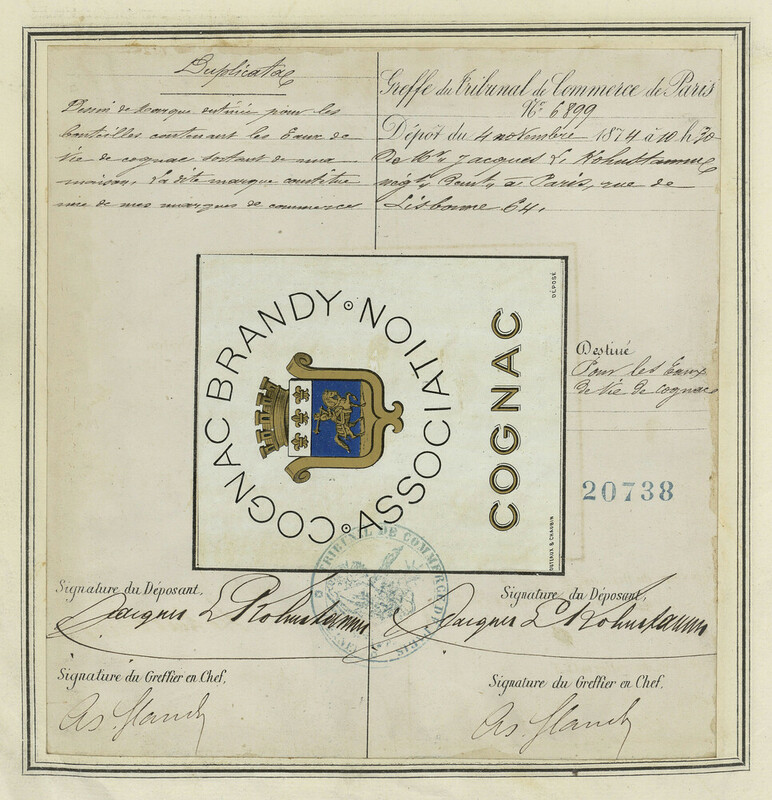 Duplicata
Dessin de Marque destinée pour les
bouteilles contenant les Eaux de
Vie de cognac sortant de ma
maison. La dite marque constitue
une de mes marques de commerces
Greffe du Tribunal de Commerce de Paris
N° 6899
Dépôt du 4 novembre 1874 à 10 h 30
De Mr. Jacques L. Kohnstamm
négt. demt. à Paris, rue de
Lisbonne 64.
DÉPOSÉ
COGNAC BRANDY
ASSOCIATION
COGNAC
Destiné
Pour les Eaux
de Vie de cognac
20738
TRIBUNAL DE COMMERCE
PARIS
Signature du Déposant,
Jacques L Kohnstamm
Signature du Déposant,
Jacques L Kohnstamm
Signature du Greffier en Chef,
Signature du Greffier en Chef,